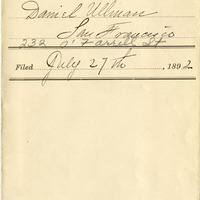 Daniel Ullman
San Francisco
232 O'Farrell St
Filed July 27th, 1892